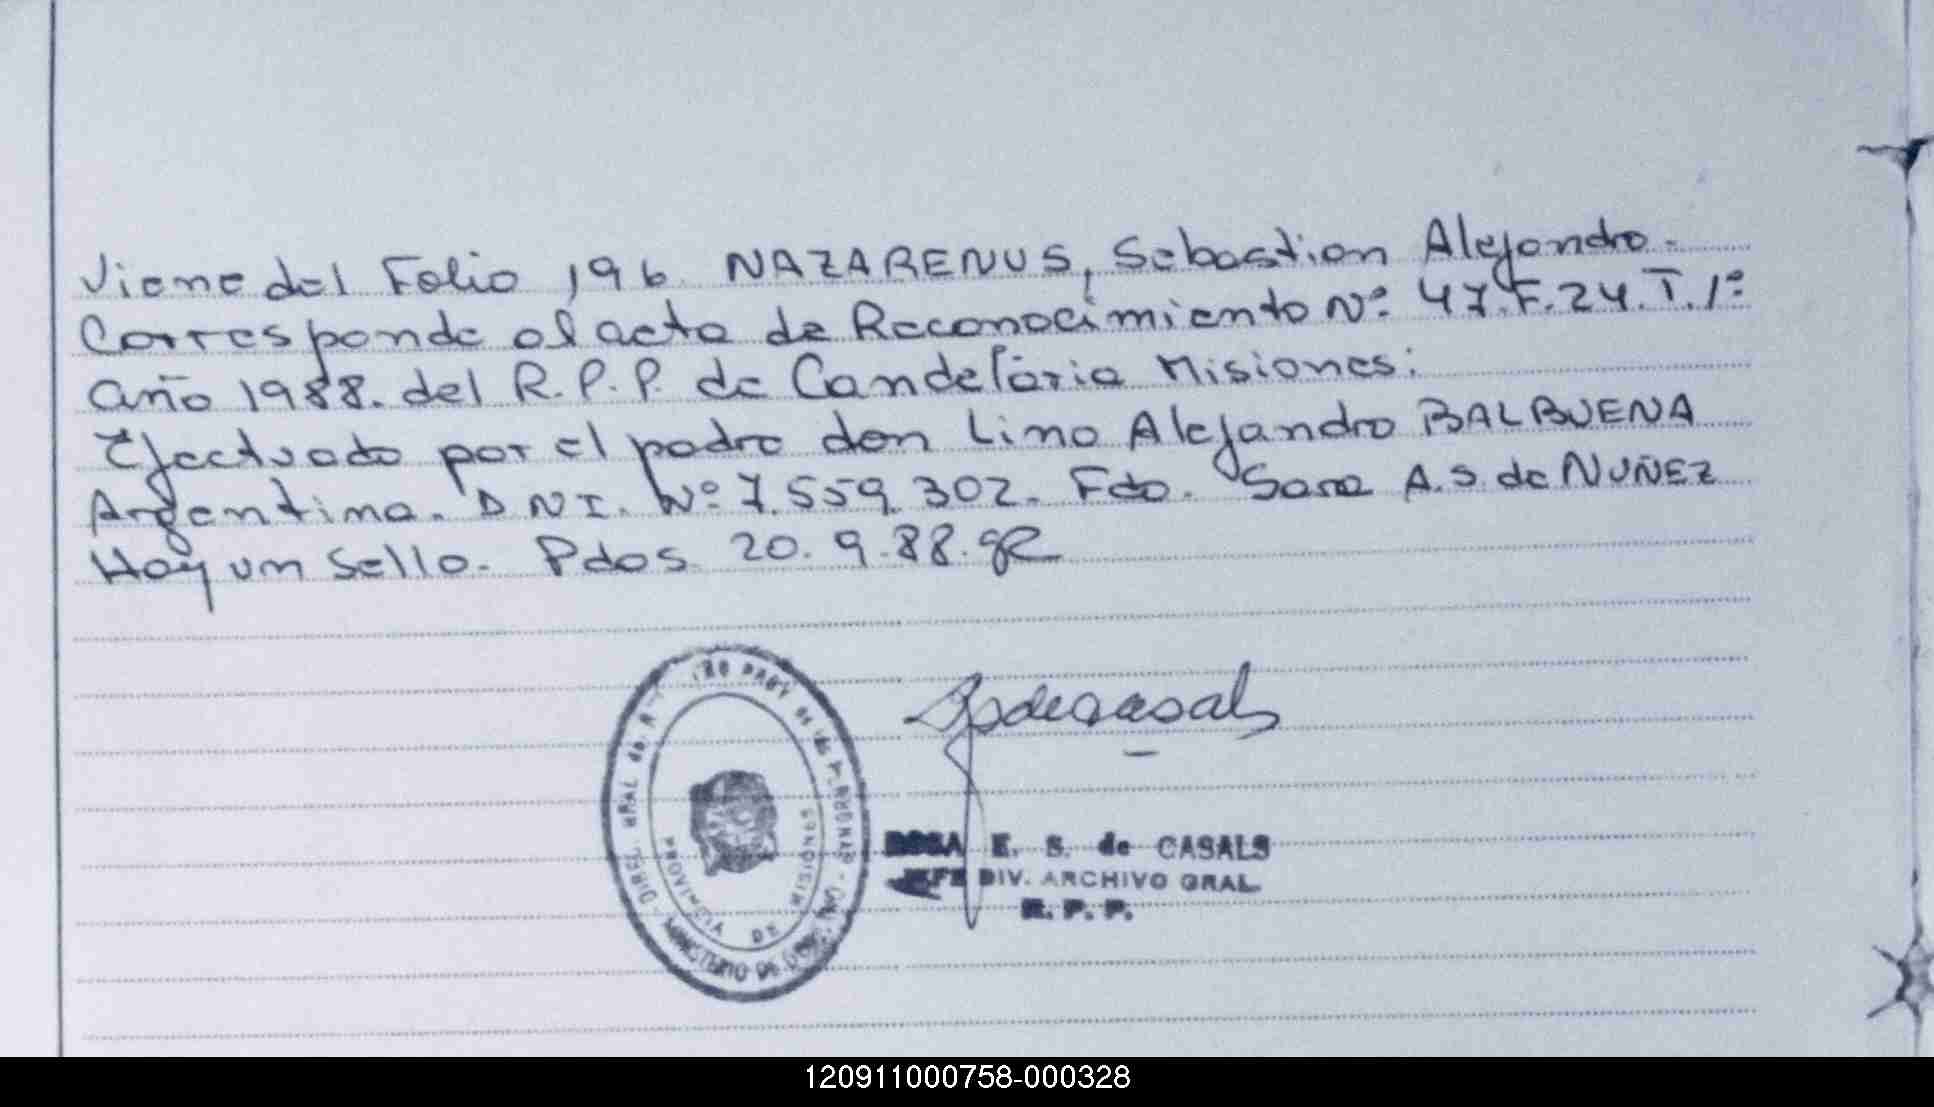 Viene del Folio 196. NAZARENUS, Sebastian Alejandro.
Corresponde al acta de Reconocimiento Nº 47.F.24.T.1º
año 1988. del R.P.P. de Candelaria Misiones:
Efectuado por el padre don Lino Alejandro BALBUENA
Argentino. D.N.I. Nº 7.559.302. Fdo. Sara A.S. de NUÑEZ
Hay un Sello. Pdos 20.9.88.
PROVINCIA DE MISIONES
MINISTERIO DE
ROSA E. S. de CASALS
JEFE DIV. ARCHIVO GRAL.
R. P. P.
120911000758-000328